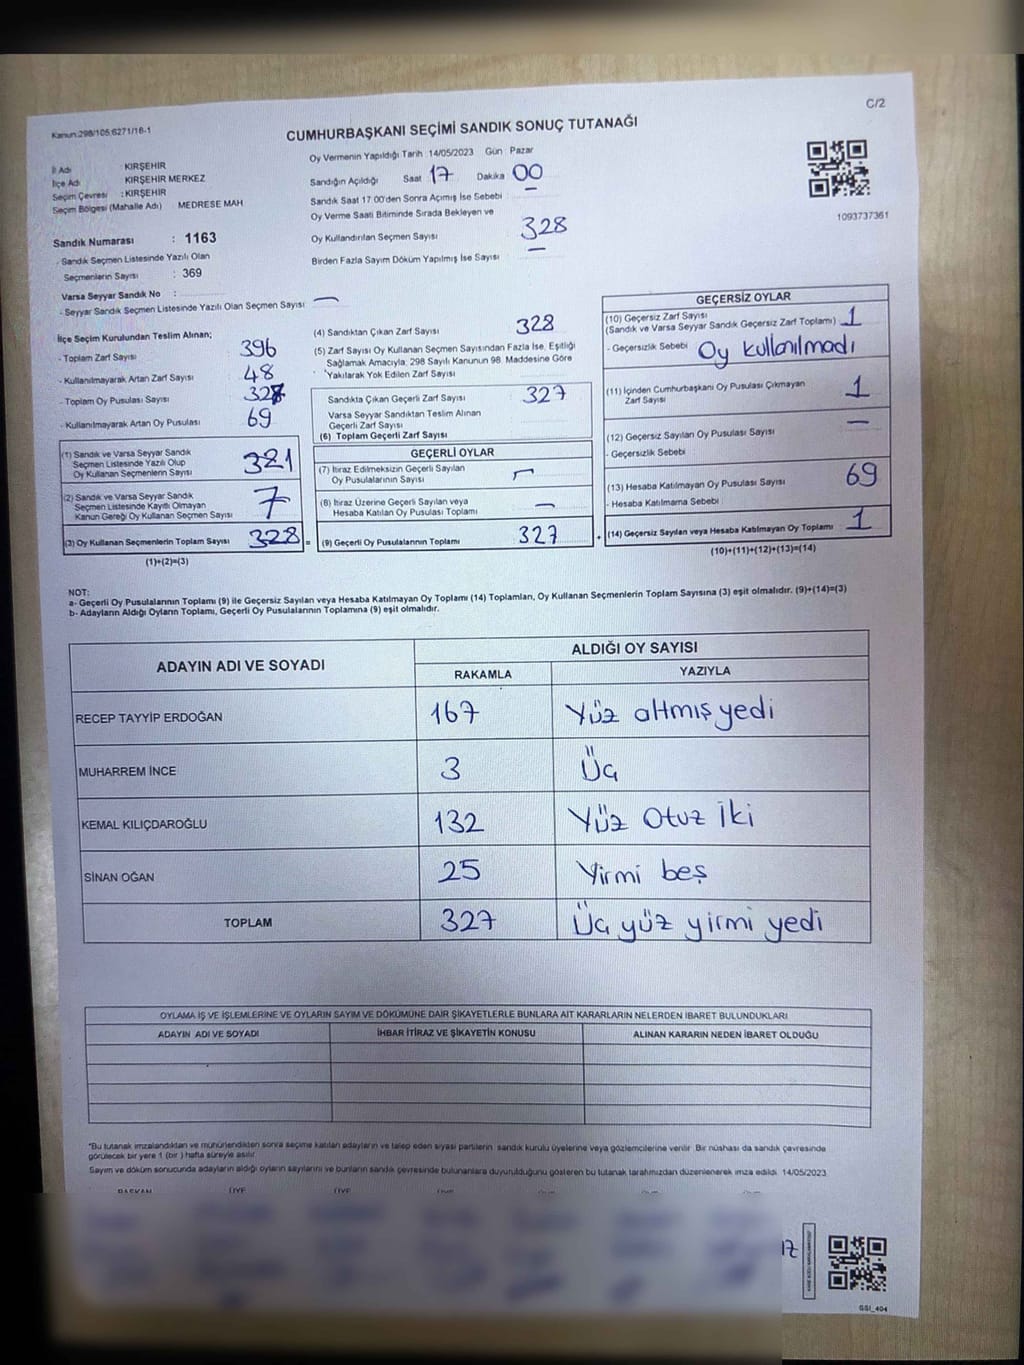 Kanun:298/105;6271/16-1
C/2
CUMHURBAŞKANI SEÇİMİ SANDIK SONUÇ TUTANAĞI
İl Adı : KIRŞEHİR
İlçe Adı : KIRŞEHİR MERKEZ
Seçim Çevresi : KIRŞEHİR
Seçim Bölgesi (Mahalle Adı) MEDRESE MAH
Sandık Numarası : 1163
- Sandık Seçmen Listesinde Yazılı Olan
Seçmenlerin Sayısı : 369
Varsa Seyyar Sandık No :
- Seyyar Sandık Seçmen Listesinde Yazılı Olan Seçmen Sayısı —
Oy Vermenin Yapıldığı Tarih 14/05/2023 Gün Pazar
Sandığın Açıldığı Saat 17 Dakika 00
Sandık Saat 17:00'den Sonra Açımış İse Sebebi —
Oy Verme Saati Bitiminde Sırada Bekleyen ve
Oy Kullandırılan Seçmen Sayısı 328
Birden Fazla Sayım Döküm Yapılmış İse Sayısı —
1093737361
İlçe Seçim Kurulundan Teslim Alınan;
- Toplam Zarf Sayısı 396
- Kullanılmayarak Artan Zarf Sayısı 48
- Toplam Oy Pusulası Sayısı 327
- Kullanılmayarak Artan Oy Pusulası 69
(1) Sandık ve Varsa Seyyar Sandık
Seçmen Listesinde Yazılı Olup
Oy Kullanan Seçmenlerin Sayısı 321
(2) Sandık ve Varsa Seyyar Sandık
Seçmen Listesinde Kayıtlı Olmayan
Kanun Gereği Oy Kullanan Seçmen Sayısı 7
(3) Oy Kullanan Seçmenlerin Toplam Sayısı 328 =
(1)+(2)=(3)
(4) Sandıktan Çıkan Zarf Sayısı 328
(5) Zarf Sayısı Oy Kullanan Seçmen Sayısından Fazla İse, Eşitliği
Sağlamak Amacıyla; 298 Sayılı Kanunun 98. Maddesine Göre
Yakılarak Yok Edilen Zarf Sayısı
Sandıkta Çıkan Geçerli Zarf Sayısı 327
Varsa Seyyar Sandıktan Teslim Alınan
Geçerli Zarf Sayısı
(6) Toplam Geçerli Zarf Sayısı
GEÇERLİ OYLAR
(7) İtiraz Edilmeksizin Geçerli Sayılan
Oy Pusulalarının Sayısı —
(8) İtiraz Üzerine Geçerli Sayılan veya
Hesaba Katılan Oy Pusulası Toplamı —
(9) Geçerli Oy Pusulalarının Toplamı 327 +
GEÇERSİZ OYLAR
(10) Geçersiz Zarf Sayısı
(Sandık ve Varsa Seyyar Sandık Geçersiz Zarf Toplamı) 1
- Geçersizlik Sebebi Oy kullanılmadı
(11) İçinden Cumhurbaşkanı Oy Pusulası Çıkmayan
Zarf Sayısı 1
(12) Geçersiz Sayılan Oy Pusulası Sayısı —
- Geçersizlik Sebebi
(13) Hesaba Katılmayan Oy Pusulası Sayısı 69
- Hesaba Katılmama Sebebi
(14) Geçersiz Sayılan veya Hesaba Katılmayan Oy Toplamı 1
(10)+(11)+(12)+(13)=(14)
NOT:
a- Geçerli Oy Pusulalarının Toplamı (9) ile Geçersiz Sayılan veya Hesaba Katılmayan Oy Toplamı (14) Toplamları, Oy Kullanan Seçmenlerin Toplam Sayısına (3) eşit olmalıdır. (9)+(14)=(3)
b- Adayların Aldığı Oyların Toplamı, Geçerli Oy Pusulalarının Toplamına (9) eşit olmalıdır.
ADAYIN ADI VE SOYADI
ALDIĞI OY SAYISI
RAKAMLA YAZIYLA
RECEP TAYYİP ERDOĞAN 167 Yüz altmış yedi
MUHARREM İNCE 3 Üç
KEMAL KILIÇDAROĞLU 132 Yüz Otuz İki
SİNAN OĞAN 25 Yirmi beş
TOPLAM 327 Üç yüz yirmi yedi
OYLAMA İŞ VE İŞLEMLERİNE VE OYLARIN SAYIM VE DÖKÜMÜNE DAİR ŞİKAYETLERLE BUNLARA AİT KARARLARIN NELERDEN İBARET BULUNDUKLARI
ADAYIN ADI VE SOYADI İHBAR İTİRAZ VE ŞİKAYETİN KONUSU ALINAN KARARIN NEDEN İBARET OLDUĞU
*Bu tutanak imzalandıktan ve mühürlendikten sonra seçime katılan adayların ve talep eden siyasi partilerin sandık kurulu üyelerine veya gözlemcilerine verilir. Bir nüshası da sandık çevresinde
görülecek bir yere 1 (bir) hafta süreyle asılır.
Sayım ve döküm sonucunda adayların aldığı oyların sayılarını ve bunların sandık çevresinde bulunanlara duyurulduğunu gösteren bu tutanak tarafımızdan düzenlenerek imza edildi. 14/05/2023
BAŞKAN ÜYE ÜYE
GSI_404